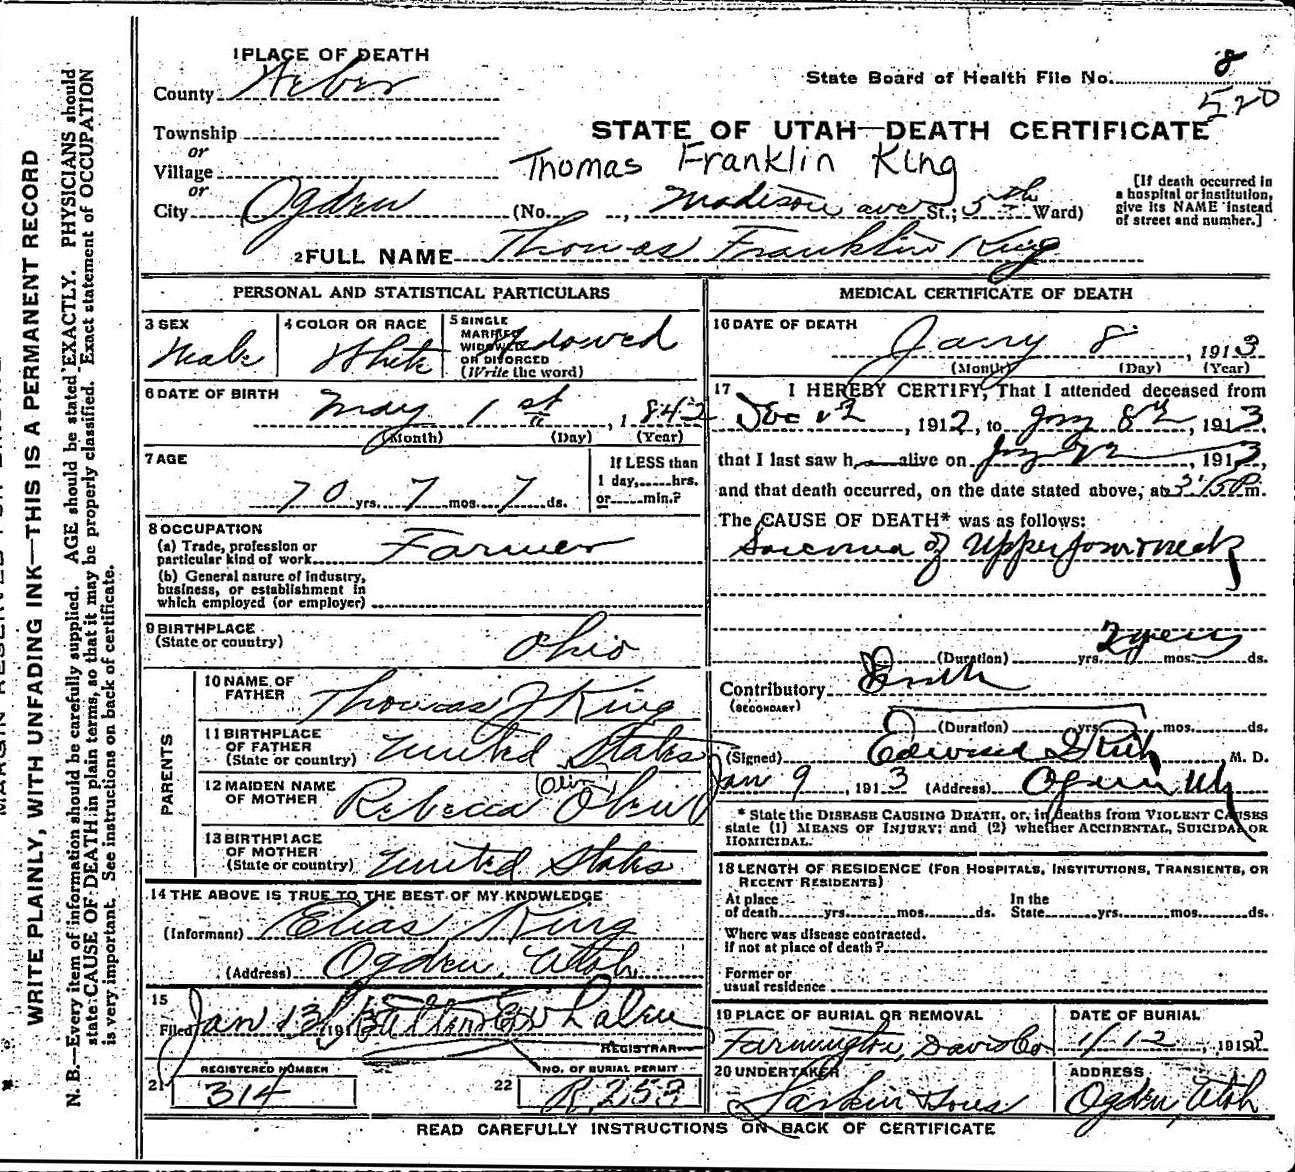 1 PLACE OF DEATH
County Weber
State Board of Health File No. 8
520
Township
or
Village
or
City Ogden
STATE OF UTAH—DEATH CERTIFICATE
Thomas Franklin King
(No. , Madison ave St.; 5th Ward)
[If death occurred in
a hospital or institution,
give its NAME instead
of street and number.]
2 FULL NAME Thomas Franklin King
PERSONAL AND STATISTICAL PARTICULARS
3 SEX
Male
4 COLOR OR RACE
White
5 SINGLE
MARRIED
WIDOWED
OR DIVORCED
(Write the word)
Widowed
6 DATE OF BIRTH
May 1st, 1842
(Month) (Day) (Year)
7 AGE
70 yrs. 7 mos. 7 ds.
If LESS than
1 day, hrs.
or min.?
8 OCCUPATION
(a) Trade, profession or
particular kind of work Farmer
(b) General nature of industry,
business, or establishment in
which employed (or employer)
9 BIRTHPLACE
(State or country) Ohio
PARENTS
10 NAME OF
FATHER Thomas J King
11 BIRTHPLACE
OF FATHER
(State or country) United States
12 MAIDEN NAME
OF MOTHER Rebecca
13 BIRTHPLACE
OF MOTHER
(State or country) United States
14 THE ABOVE IS TRUE TO THE BEST OF MY KNOWLEDGE
(Informant) Elias King
(Address) Ogden Utah
15
Filed Jan 13 191
REGISTRAR
21 REGISTERED NUMBER
314
22 NO. OF BURIAL PERMIT
R 253
MEDICAL CERTIFICATE OF DEATH
16 DATE OF DEATH
Jany 8, 1913
(Month) (Day) (Year)
17 I HEREBY CERTIFY, That I attended deceased from
Dec 12, 1912, to Jany 8, 1913,
that I last saw h alive on Jany, 1913,
and that death occurred, on the date stated above, at 3:15 P m.
The CAUSE OF DEATH* was as follows:
Sarcoma of Upper Jaw & neck
(Duration) yrs. 2 years mos. ds.
Contributory
(SECONDARY)
(Duration) yrs. mos. ds.
(Signed) Edward I Rich M. D.
Jan 9, 1913 (Address) Ogden Ut
* State the DISEASE CAUSING DEATH, or, in deaths from VIOLENT CAUSES
state (1) MEANS OF INJURY; and (2) whether ACCIDENTAL, SUICIDAL OR
HOMICIDAL.
18 LENGTH OF RESIDENCE (FOR HOSPITALS, INSTITUTIONS, TRANSIENTS, OR
RECENT RESIDENTS)
At place
of death yrs. mos. ds.
In the
State yrs. mos. ds.
Where was disease contracted.
if not at place of death?
Former or
usual residence
19 PLACE OF BURIAL OR REMOVAL
Farmington, Davis Co
DATE OF BURIAL
1/12, 1913
20 UNDERTAKER
Larkin & Sons
ADDRESS
Ogden, Utah
READ CAREFULLY INSTRUCTIONS ON BACK OF CERTIFICATE
WRITE PLAINLY, WITH UNFADING INK—THIS IS A PERMANENT RECORD
N. B.—Every item of information should be carefully supplied. AGE should be stated EXACTLY. PHYSICIANS should
state CAUSE OF DEATH in plain terms, so that it may be properly classified. Exact statement of OCCUPATION
is very important. See instructions on back of certificate.